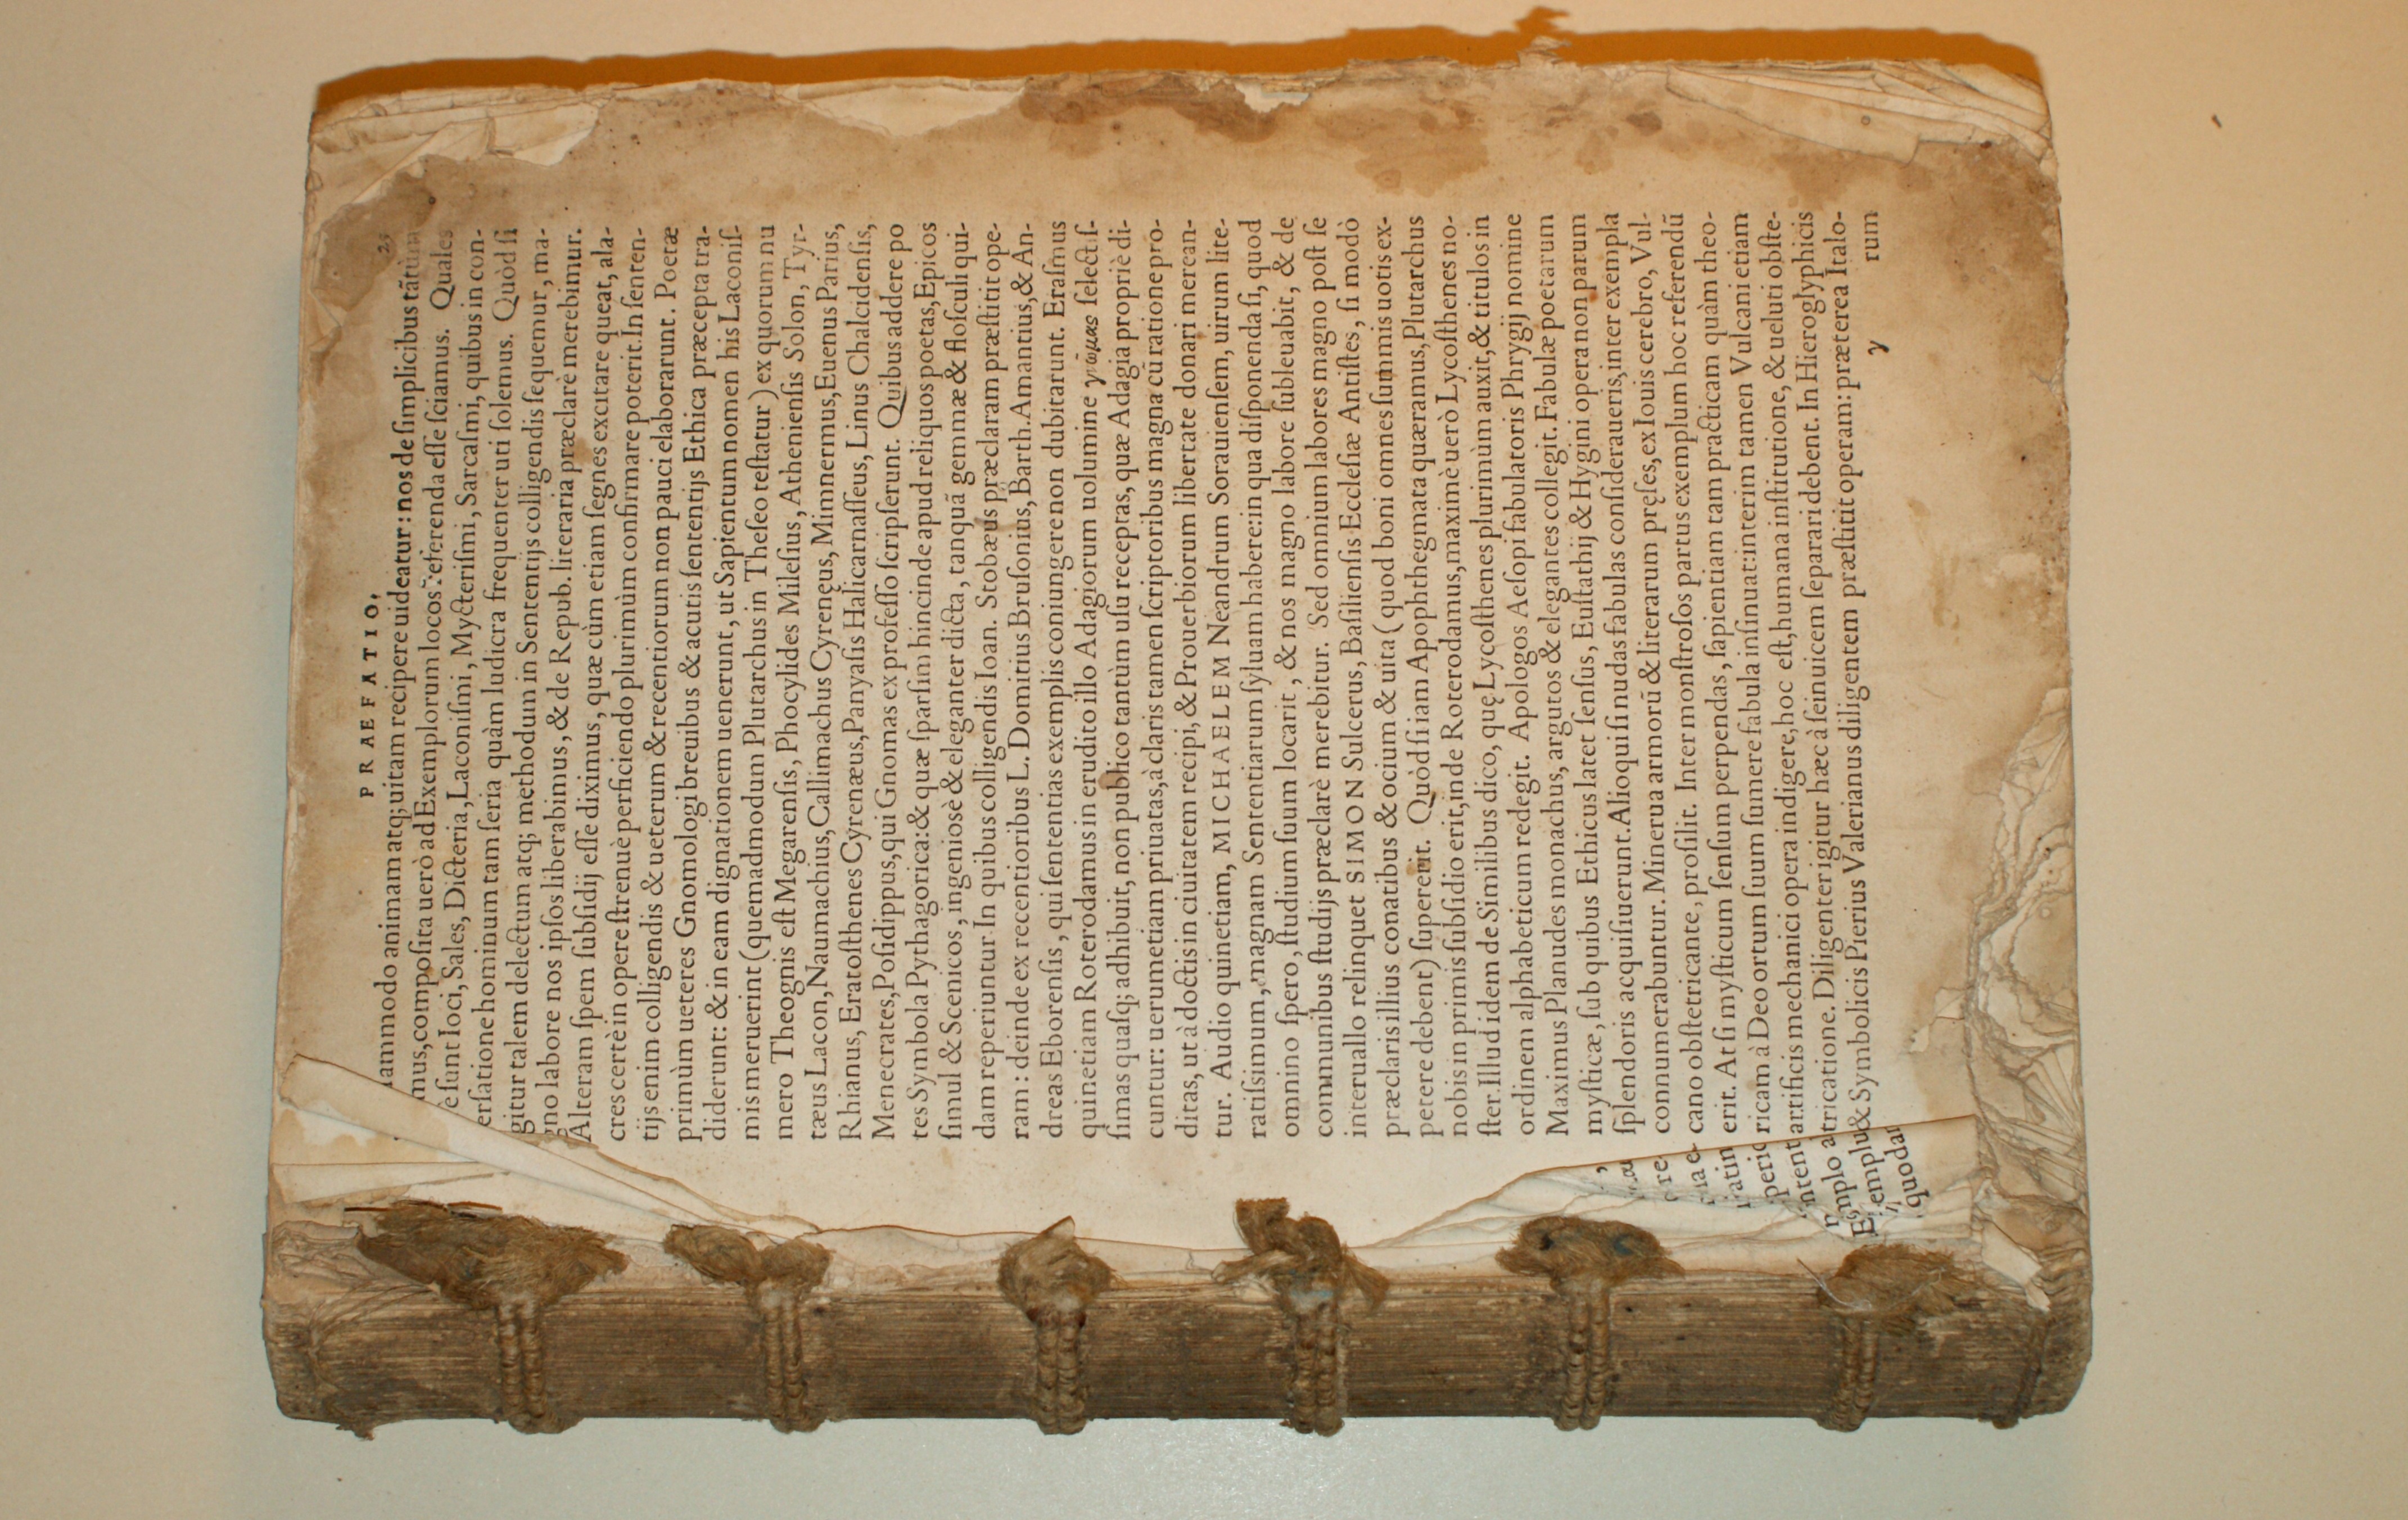 PRAEFATIO, 23
ammodo animam atq; uitam recipere uideatur: nos de simplicibus tãtùm
mus, composita uerò ad Exemplorum locos referenda esse sciamus. Quales
è sunt Ioci, Sales, Dicteria, Laconismi, Mycterismi, Sarcasmi, quibus in con-
ersatione hominum tam seria quàm ludicra frequenter uti solemus. Quòd si
gitur talem delectum atq; methodum in Sententijs colligendis sequemur, ma-
gno labore nos ipsos liberabimus, & de Repub. literaria præclarè merebimur.
Alteram spem subsidij esse diximus, quæ cùm etiam segnes excitare queat, ala-
cres certè in opere strenuè perficiendo plurimùm confirmare poterit. In senten-
tijs enim colligendis & ueterum & recentiorum non pauci elaborarunt. Poetæ
primùm ueteres Gnomologi breuibus & acutis sententijs Ethica præcepta tra-
diderunt: & in eam dignationem uenerunt, ut Sapientum nomen his Laconis-
mis meruerint (quemadmodum Plutarchus in Theseo testatur) ex quorum nu
mero Theognis est Megarensis, Phocylides Milesius, Atheniensis Solon, Tyr-
tæus Lacon, Naumachius, Callimachus Cyrenęus, Mimnermus, Euenus Parius,
Rhianus, Eratosthenes Cyrenæus, Panyasis Halicarnasseus, Linus Chalcidensis,
Menecrates, Posidippus, qui Gnomas ex professo scripserunt. Quibus addere po
tes Symbola Pythagorica: & quæ sparsim hincinde apud reliquos poetas, Epicos
simul & Scenicos, ingeniosè & eleganter dicta, tanquã gemmæ & flosculi qui-
dam reperiuntur. In quibus colligendis Ioan. Stobæus præclaram præstitit ope-
ram: deinde ex recentioribus L. Domitius Brusonius, Barth. Amantius, & An-
dreas Eborensis, qui sententias exemplis coniungere non dubitarunt. Erasmus
quinetiam Roterodamus in erudito illo Adagiorum uolumine γνώμας selectis-
simas quasq; adhibuit, non publico tantùm usu receptas, quæ Adagia propriè di-
cuntur: uerumetiam priuatas, à claris tamen scriptoribus magna cũ ratione pro-
ditas, ut à doctis in ciuitatem recipi, & Prouerbiorum libertate donari merean-
tur. Audio quinetiam, MICHAELEM Neandrum Sorauiensem, uirum lite-
ratissimum, magnam Sententiarum syluam habere: in qua disponenda si, quod
omnino spero, studium suum locarit, & nos magno labore subleuabit, & de
communibus studijs præclarè merebitur. Sed omnium labores magno post se
interuallo relinquet SIMON Sulcerus, Basiliensis Ecclesiæ Antistes, si modò
præclaris illius conatibus & ocium & uita (quod boni omnes summis uotis ex-
petere debent) supererit. Quòd si iam Apophthegmata quæramus, Plutarchus
nobis in primis subsidio erit, inde Roterodamus, maximè uerò Lycosthenes no-
ster. Illud idem de Similibus dico, quę Lycosthenes plurimùm auxit, & titulos in
ordinem alphabeticum redegit. Apologos Aesopi fabulatoris Phrygij nomine
Maximus Planudes monachus, argutos & elegantes collegit. Fabulæ poetarum
mysticæ, sub quibus Ethicus latet sensus, Eustathij & Hygini opera non parum
splendoris acquisiuerunt. Alioqui si nudas fabulas consideraueris, inter exempla
connumerabuntur. Minerua armorũ & literarum pręses, ex Iouis cerebro, Vul-
cano obstetricante, prosilit. Inter monstrosos partus exemplum hoc referendũ
erit. At si mysticum sensum perpendas, sapientiam tam practicam quàm theo-
ricam à Deo ortum suum sumere fabula insinuat: interim tamen Vulcani etiam
artificis mechanici opera indigere, hoc est, humana institutione, & ueluti obste-
tricatione. Diligenter igitur hæc à seinuicem separari debent. In Hieroglyphicis
& Symbolicis Pierius Valerianus diligentem præstitit operam: præterea Italo-
γ rum
re-
atin
peric
ntent
mplo
emplu
quodam